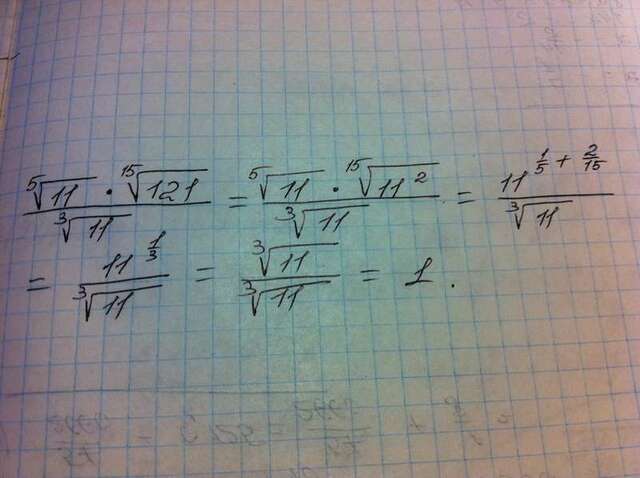 ⁵√11 · ¹⁵√121 / ³√11 = ⁵√11 · ¹⁵√11² / ³√11 = 11^(1/5 + 2/15) / ³√11
= 11^(1/3) / ³√11 = ³√11 / ³√11 = 1.